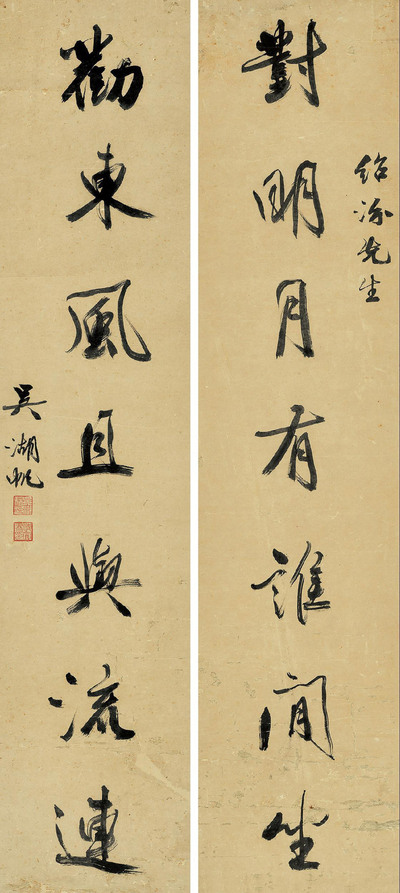 紹汾先生
對明月有誰閒坐
勸東風且與流連
吳湖帆